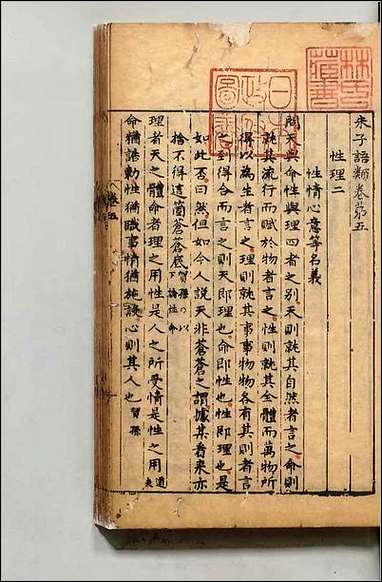 朱子語類卷第五
性理二
性情心意等名義
問天與命性與理四者之別天則就其自然者言之命則
就其流行而賦於物者言之性則就其全體而萬物所
得以為生者言之理則就其事事物物各有其則者言
之到得合而言之則天即理也命即性也性即理也是
如此否曰然但如今人說天非蒼蒼之謂據某看來亦
捨不得這箇蒼蒼底賀孫○以下論性命
理者天之體命者理之用性是人之所受情是性之用道夫
命猶誥勑性猶職事情猶施設心則其人也賀孫
林氏藏書
日本政府圖書